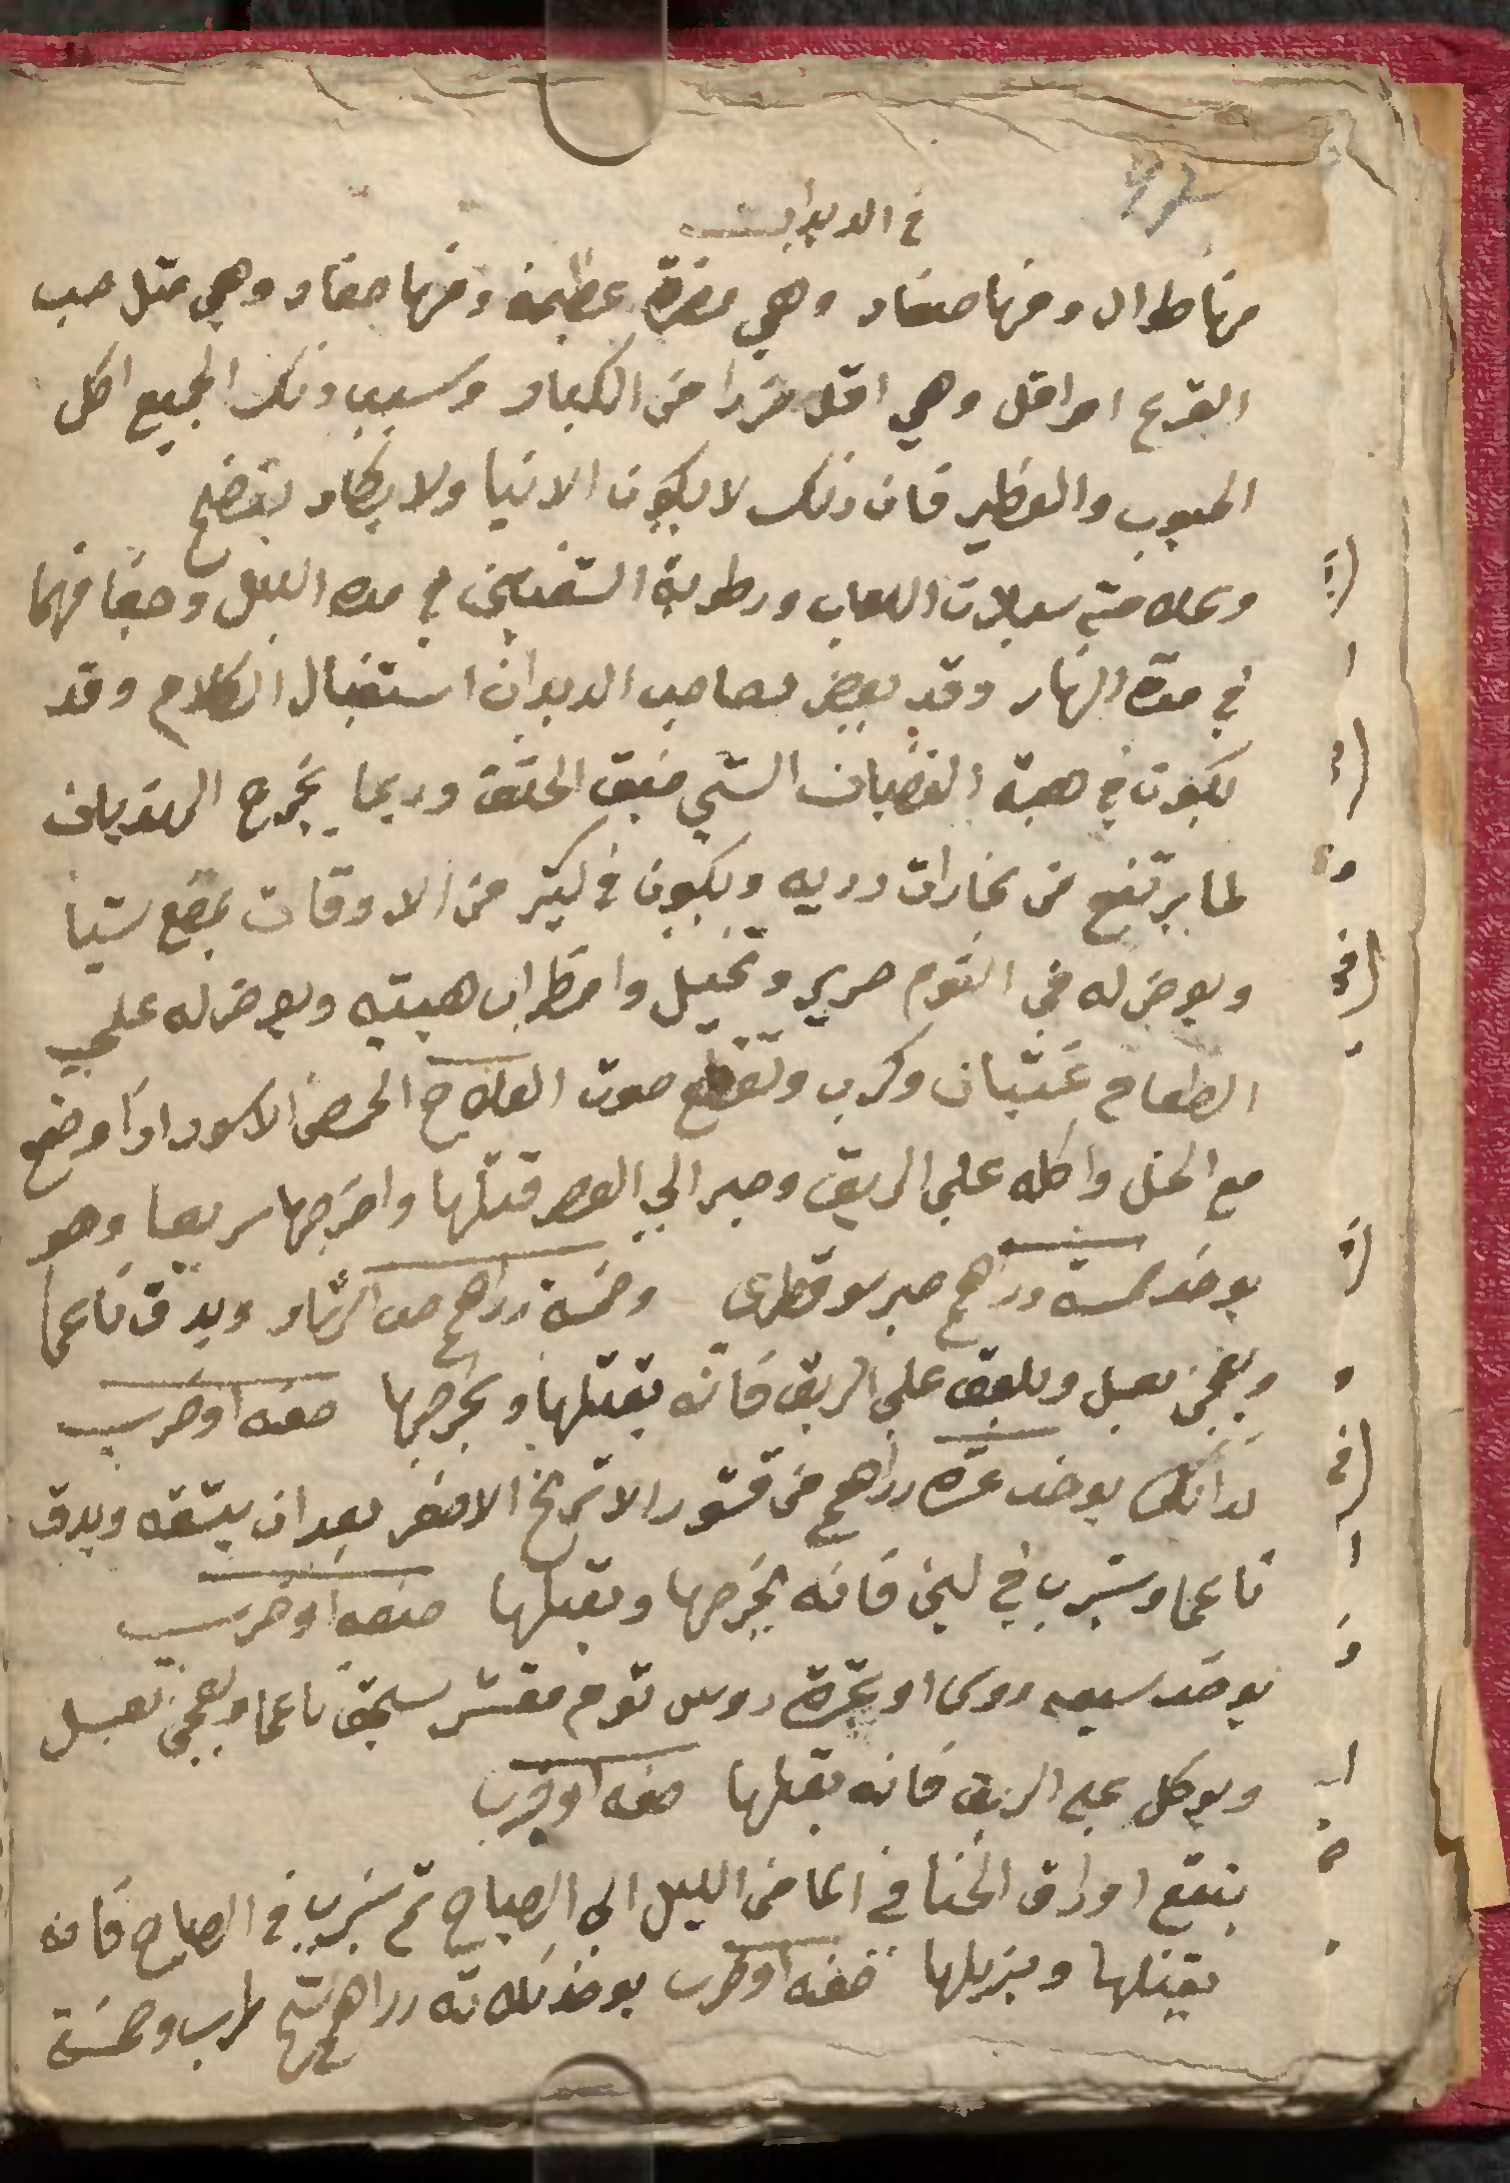 في الديدان
منها طوال ومنها صغار وهي مضرة عظيمة ومنها صغار وهي مثل حب
القرع او اقل وهي اقل ضررا من الكبار وسبب ذلك الجميع اكل
الحبوب والفطير فان ذلك لا يكون الا نيا ولا يكاد ينضج
وعلامته سيلان اللعاب ورطوبة الشفتين في مده الليل وجفافهما
في مدة النهار وقد يعرض لصاحب الديدان استثقال الكلام وقد
يكون في هيئة الغضبان السيي ضيق الخلق وربما يخرج الى الهذيان
لما يرتفع من بخارات رديه ويكون في كثير من الاوقات يمضغ شيا
ويعرض له في النوم صرير وتخيل واضطراب هيئته ويعرض له على
الطعام غثيان وكرب وتقطع صوت العلاج الحمص الاسود اذا وضع
مع الخل واكله على الريق وصبر الى العصر قتلها واخرجها سريعا وهو
يوخذ خمسة دراهم صبر سوقطرى وخمسة دراهم حب الرشاد ويدق ناعما
ويعجن بعسل ويلعق على الريق فانه يقتلها ويخرجها صفه اوخرى
لذلك يوخذ عشرة دراهم من قشور الاترنج الاصفر بعد ان يبشقه ويدق
ناعما ويشرب في لبن فانه يخرجها ويقتلها صفه اوخرى
يوخذ سبعه روس او عشرة روس توم مقشر يسحق ناعما ويعجن بعسل
ويوكل على الريق فانه يقتلها صفه اوخرى
ينقع اوراق الحنا في الما من الليل الى الصباح ثم يشرب في الصباح فانه
يقتلها ويزيلها صفه اوخرى يوخذ ثلاثه دراهم وخمسة